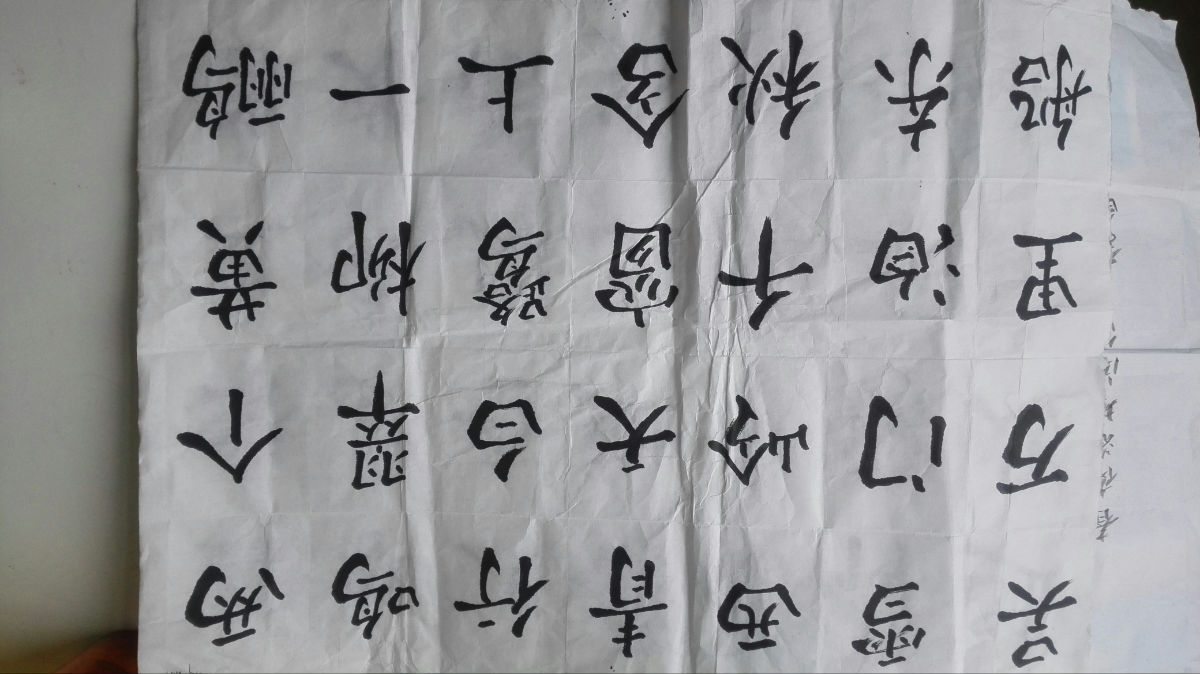 两个黄鹂
鸣翠柳一
行白鹭上
青天窗含
西岭千秋
雪门泊东
吴万里船